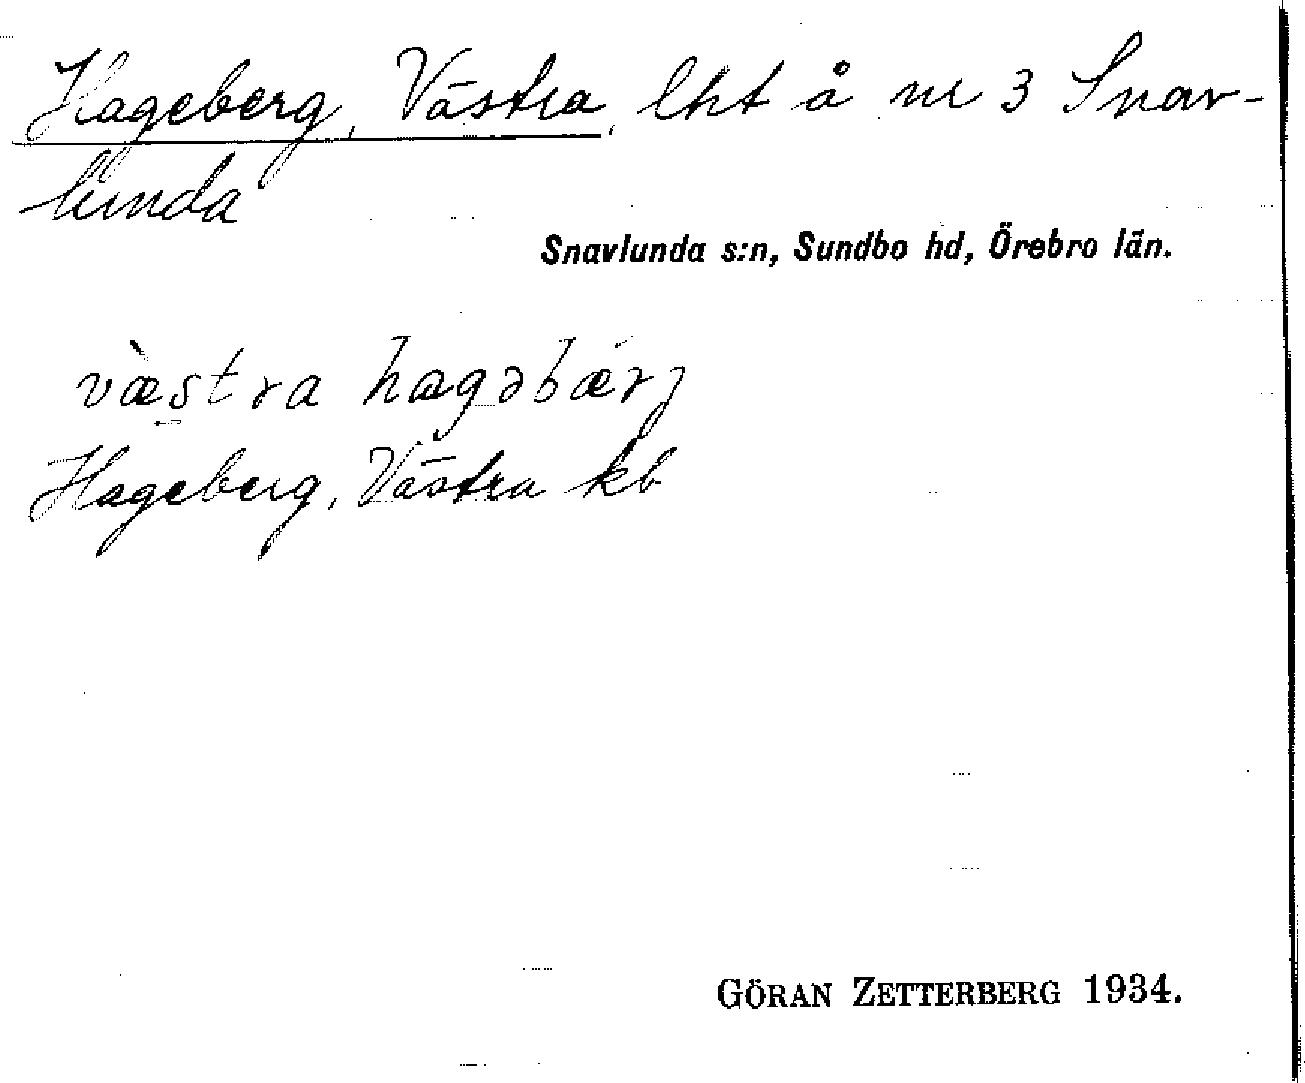 Hageberg, Västra, lht å nr 3 Snav-
lunda
Snavlunda s:n, Sundbo hd, Örebro län.
væ̀stra hagəbǽrj
Hageberg, Västra kb
GÖRAN ZETTERBERG 1934.